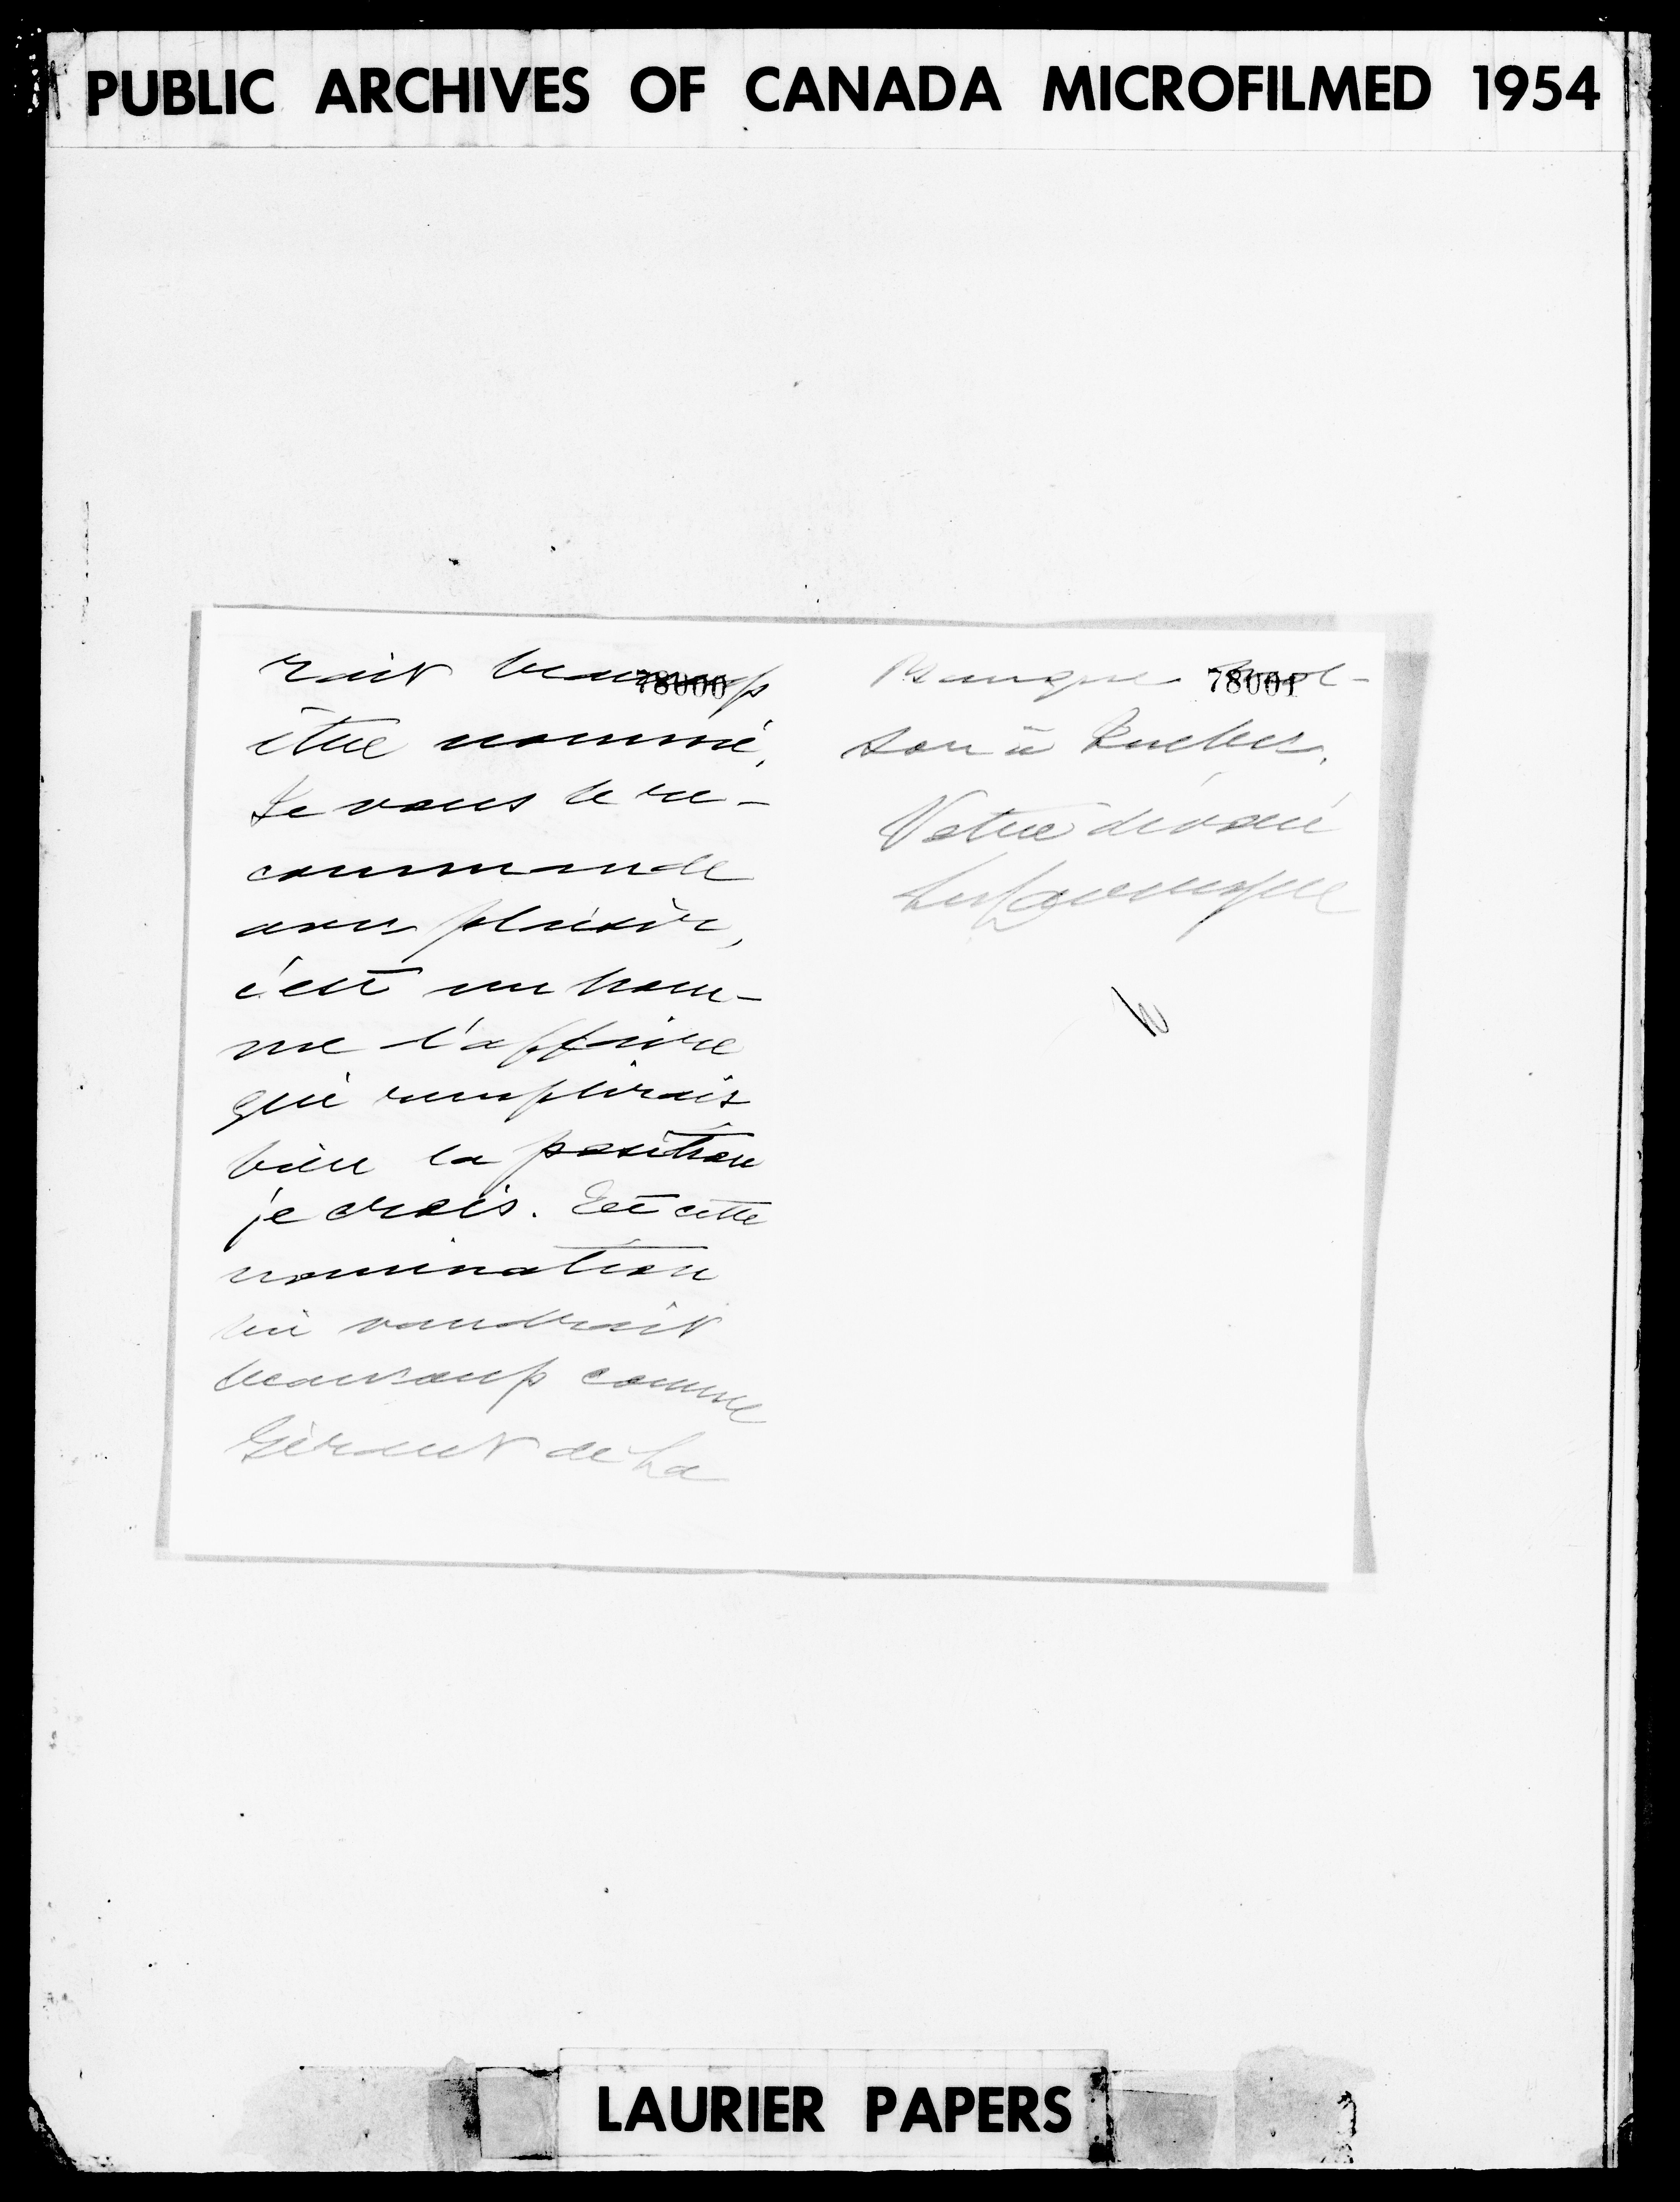 PUBLIC ARCHIVES OF CANADA MICROFILMED 1954
rait beaucoup
78000
être nommé.
Je vous le re-
commande
avec plaisir,
c'est un hom-
me d'affaire
qui remplirais
bien la position
je crois. Et cette
nomination
lui vaudrait
beaucoup comme
Gérant de La
Banque Mol-
78001
son à Québec.
Votre dévoué
LAURIER PAPERS